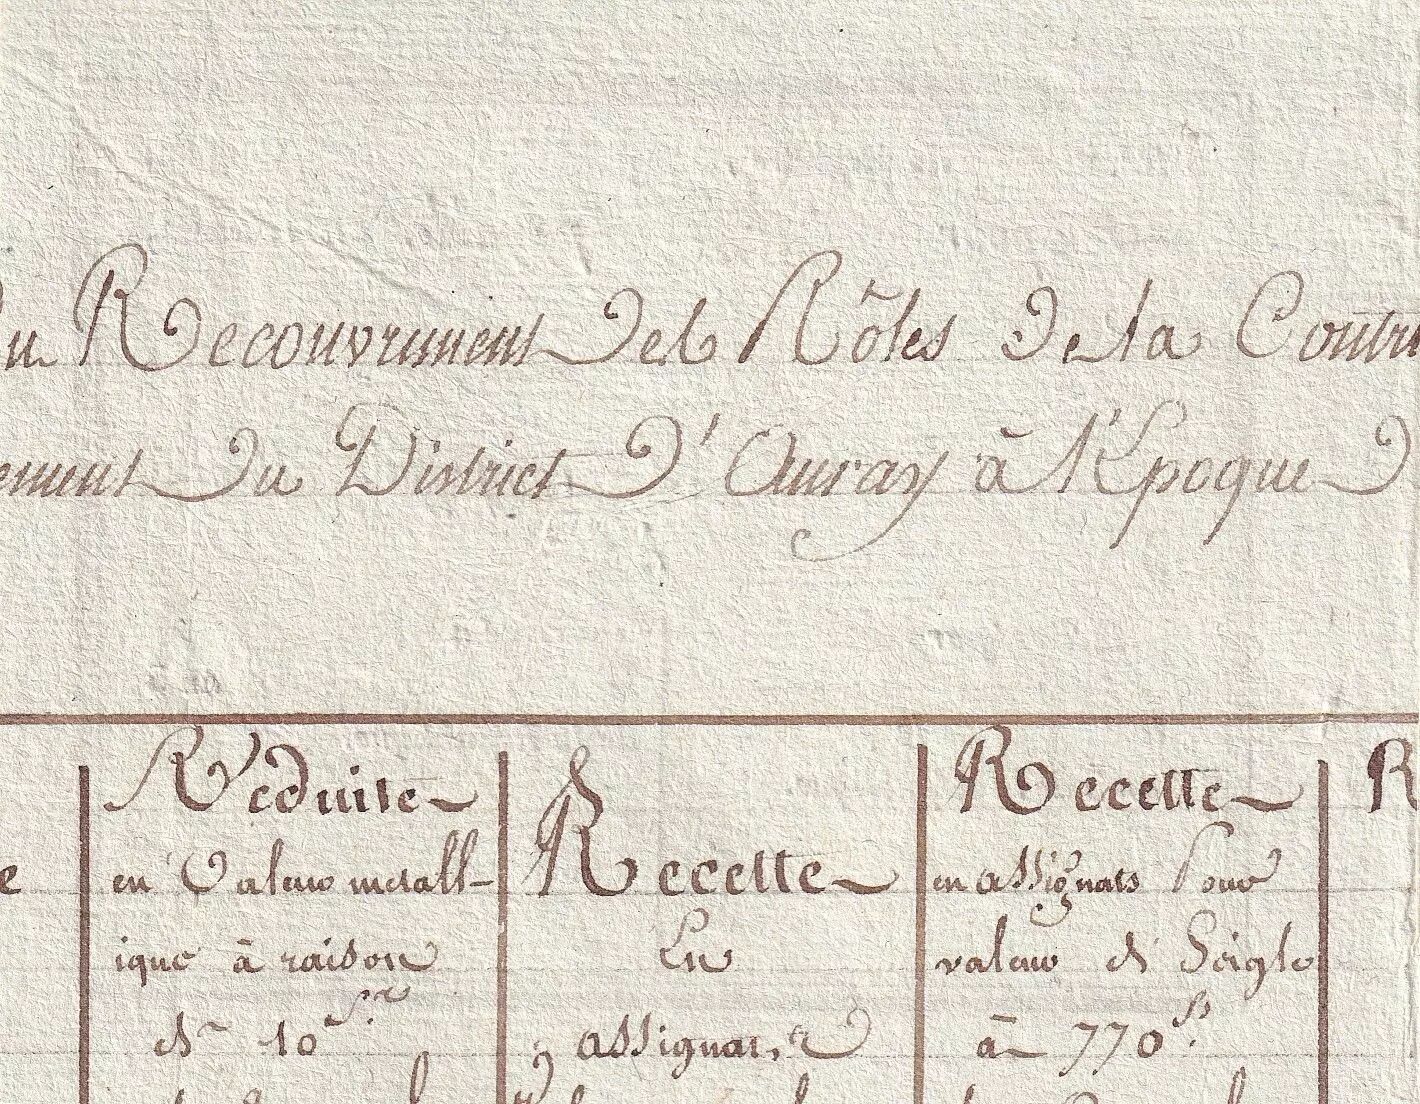 du Recouvrement des Rôles de la Contri
ement du District d'Auray à l'Epoque d
Réduite
en Valeur metall-
ique à raison
de 10
Recette
En
assignats
Recette
en assignats Pour
valeur de Seigle
à 770
R
e